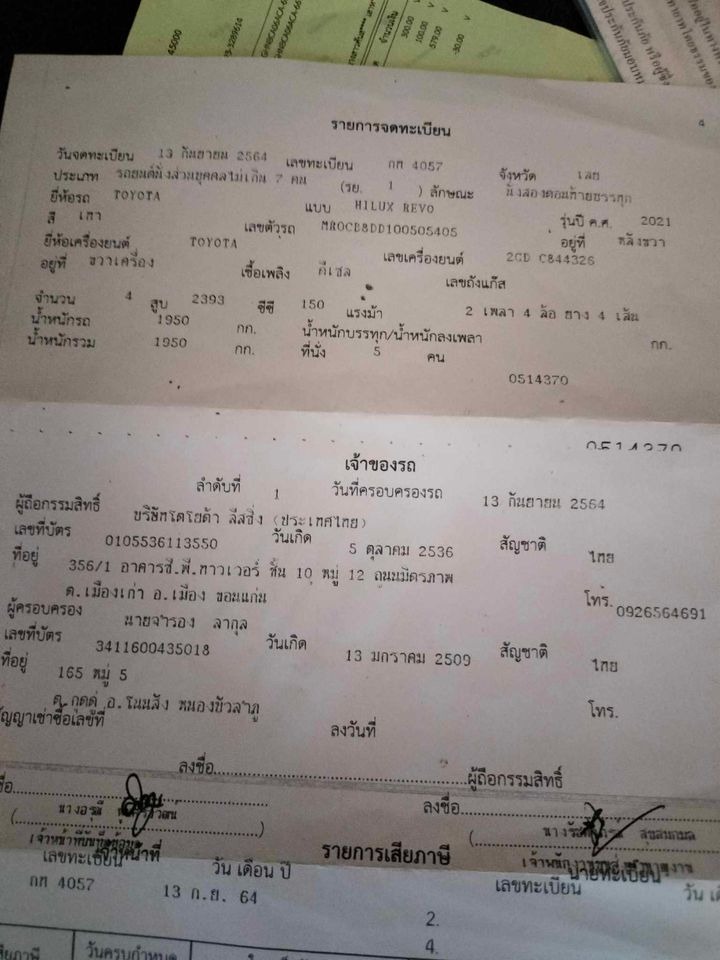 45000
GHN8CA66ACA-66
จำนวนเงิน
500.00 V
100.00 V
-579.00 V
-30.00 V
4
รายการจดทะเบียน
วันจดทะเบียน 13 กันยายน 2564 เลขทะเบียน กฅ 4057 จังหวัด เลย
ประเภท รถยนต์นั่งส่วนบุคคลไม่เกิน 7 คน (รย. 1 ) ลักษณะ นั่งสองตอนท้ายบรรทุก
ยี่ห้อรถ TOYOTA แบบ HILUX REVO รุ่นปี ค.ศ. 2021
สี เทา เลขตัวรถ MR0CB8DD100505405 อยู่ที่ หลังขวา
ยี่ห้อเครื่องยนต์ TOYOTA เลขเครื่องยนต์ 2GD C844326
อยู่ที่ ขวาเครื่อง เชื้อเพลิง ดีเซล เลขถังแก๊ส
จำนวน 4 สูบ 2393 ซีซี 150 แรงม้า 2 เพลา 4 ล้อ ยาง 4 เส้น
น้ำหนักรถ 1950 กก. น้ำหนักบรรทุก/น้ำหนักลงเพลา กก.
น้ำหนักรวม 1950 กก. ที่นั่ง 5 คน
0514370
0514370
เจ้าของรถ
ลำดับที่ 1 วันที่ครอบครองรถ 13 กันยายน 2564
ผู้ถือกรรมสิทธิ์ บริษัทโตโยต้า ลีสซิ่ง (ประเทศไทย)
เลขที่บัตร 0105536113550 วันเกิด 5 ตุลาคม 2536 สัญชาติ ไทย
ที่อยู่ 356/1 อาคารซี.พี.ทาวเวอร์ ชั้น 10 หมู่ 12 ถนนมิตรภาพ
ต.เมืองเก่า อ.เมือง ขอนแก่น โทร. 0926564691
ผู้ครอบครอง นายจำรอง ลากุล
เลขที่บัตร 3411600435018 วันเกิด 13 มกราคม 2509 สัญชาติ ไทย
ที่อยู่ 165 หมู่ 5
ต.กุดดู่ อ.โนนสัง หนองบัวลำภู โทร.
สัญญาเช่าซื้อเลขที่ ลงวันที่
ลงชื่อ ผู้ถือกรรมสิทธิ์
ชื่อ ลงชื่อ
เจ้าหน้าที่ นายทะเบียน
รายการเสียภาษี
เลขทะเบียน วัน เดือน ปี เลขทะเบียน วัน
กฅ 4057 13 ก.ย. 64 2.
4.
เสียภาษี วันครบกำหนด